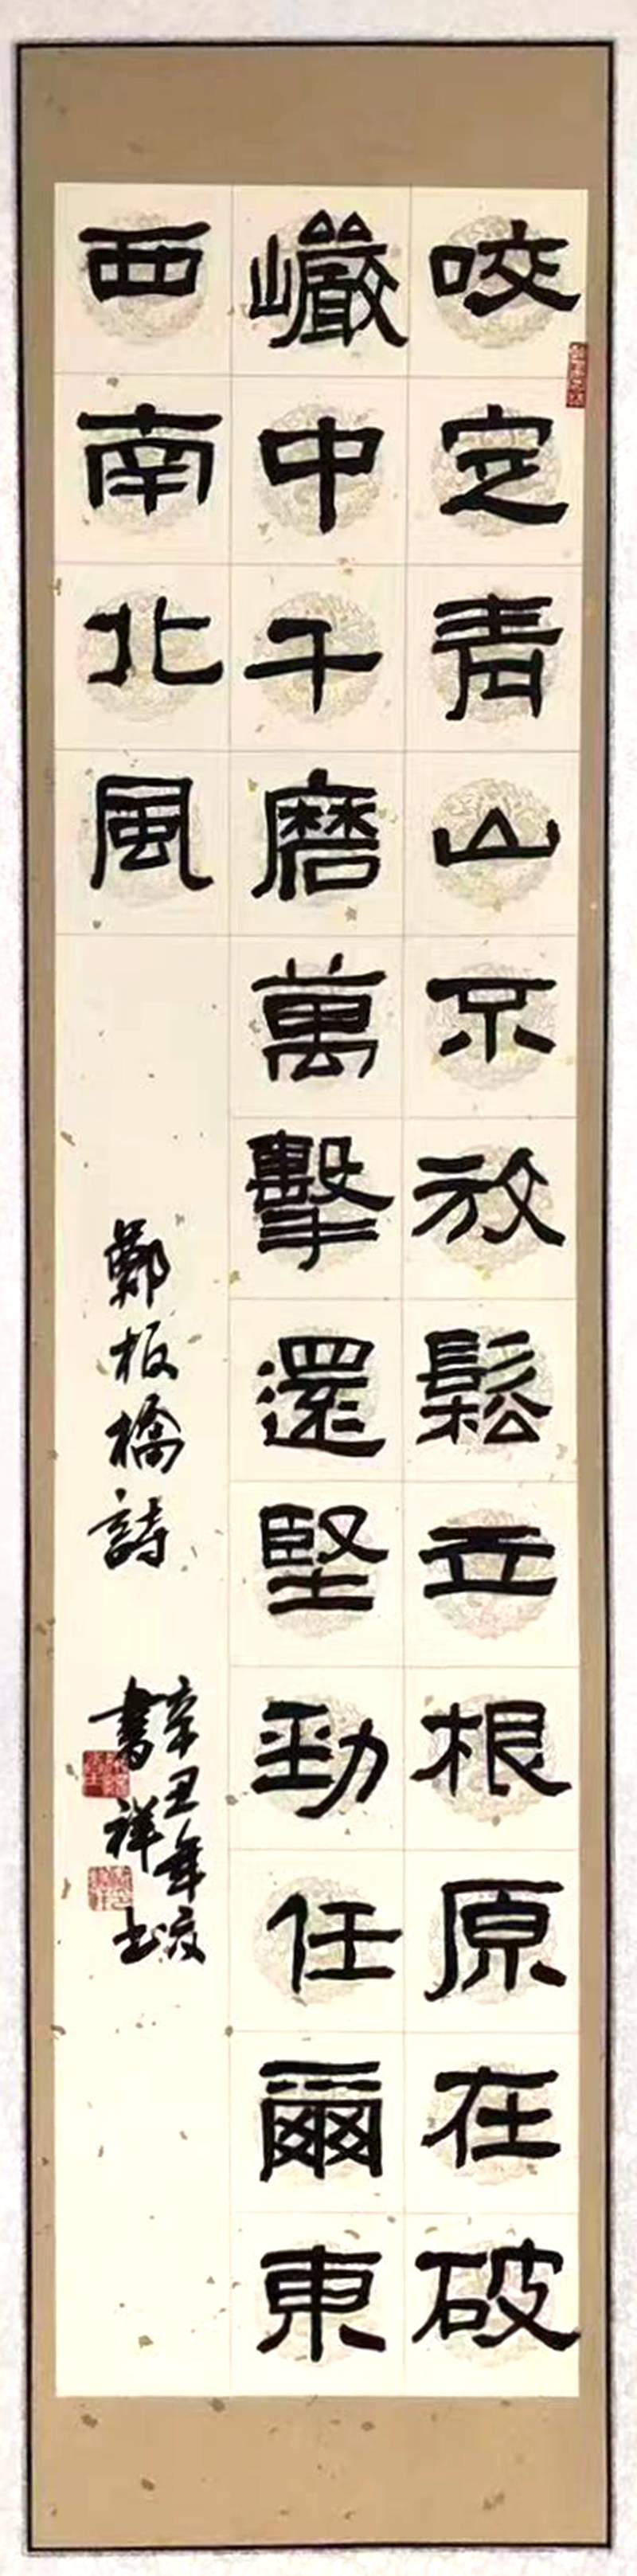 咬定青山不放鬆立根原在破
巖中千磨萬擊還堅勁任爾東
西南北風
鄭板橋詩
辛丑年夏
書祥书